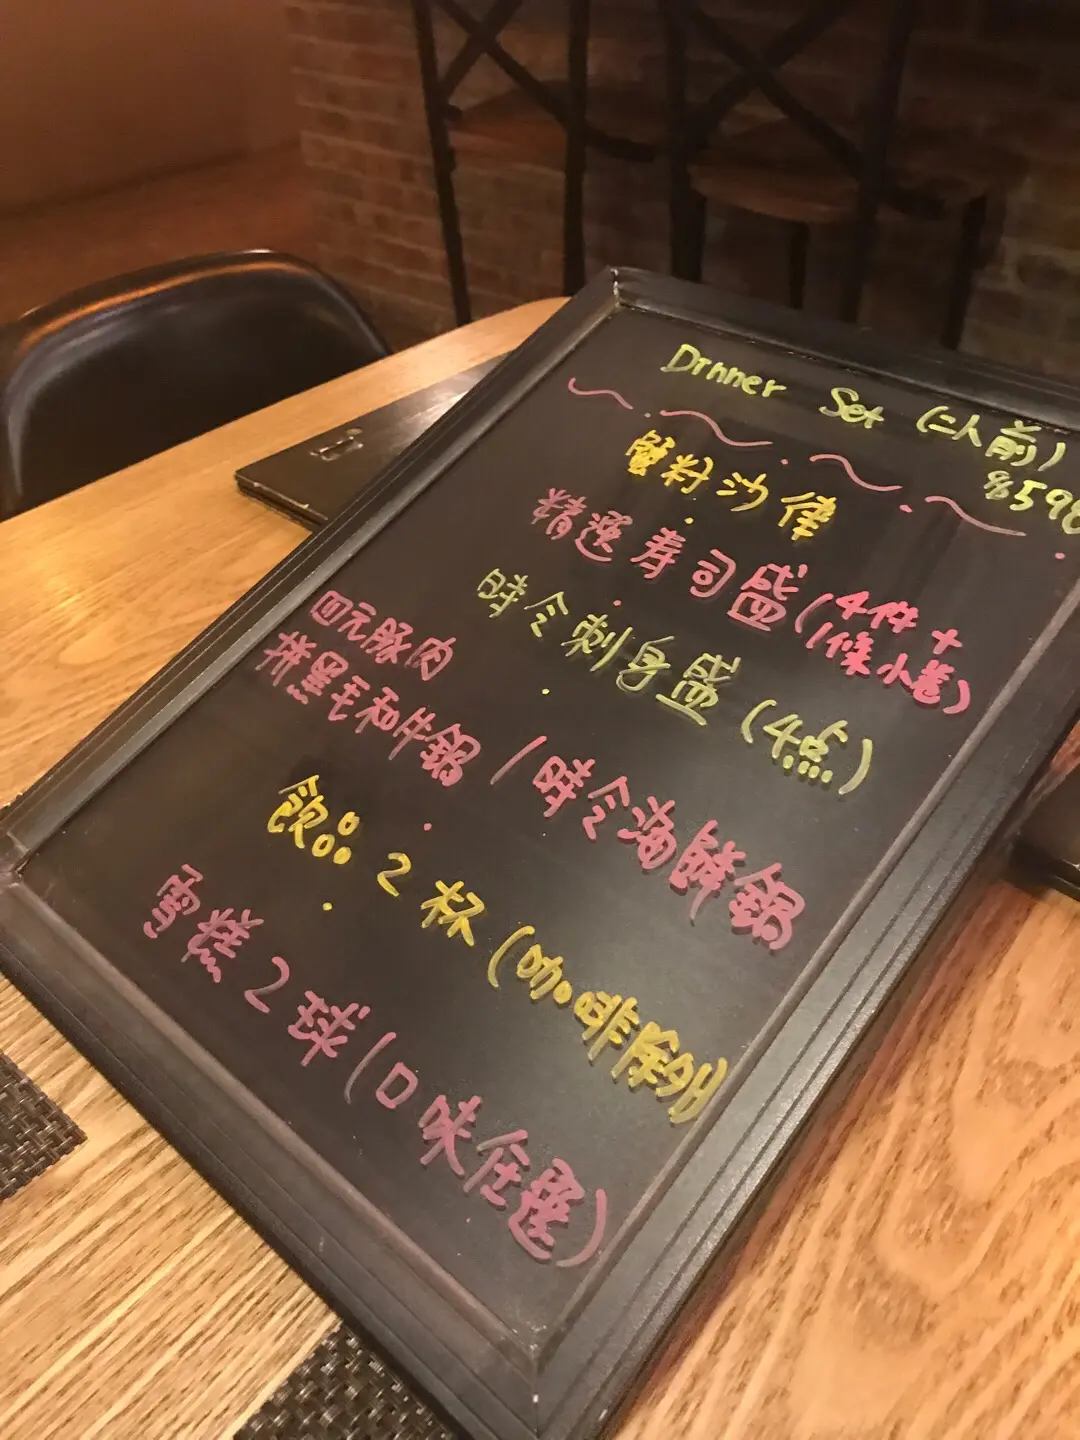 Dinner Set (二人前)
$598
蟹籽沙律
精選寿司盛(4件+
1條小卷)
時令刺身盛(4点)
四元豚肉
拼黑毛和牛鍋 / 時令海鮮鍋
飲品2杯(咖啡除外)
雪糕2球(口味任選)